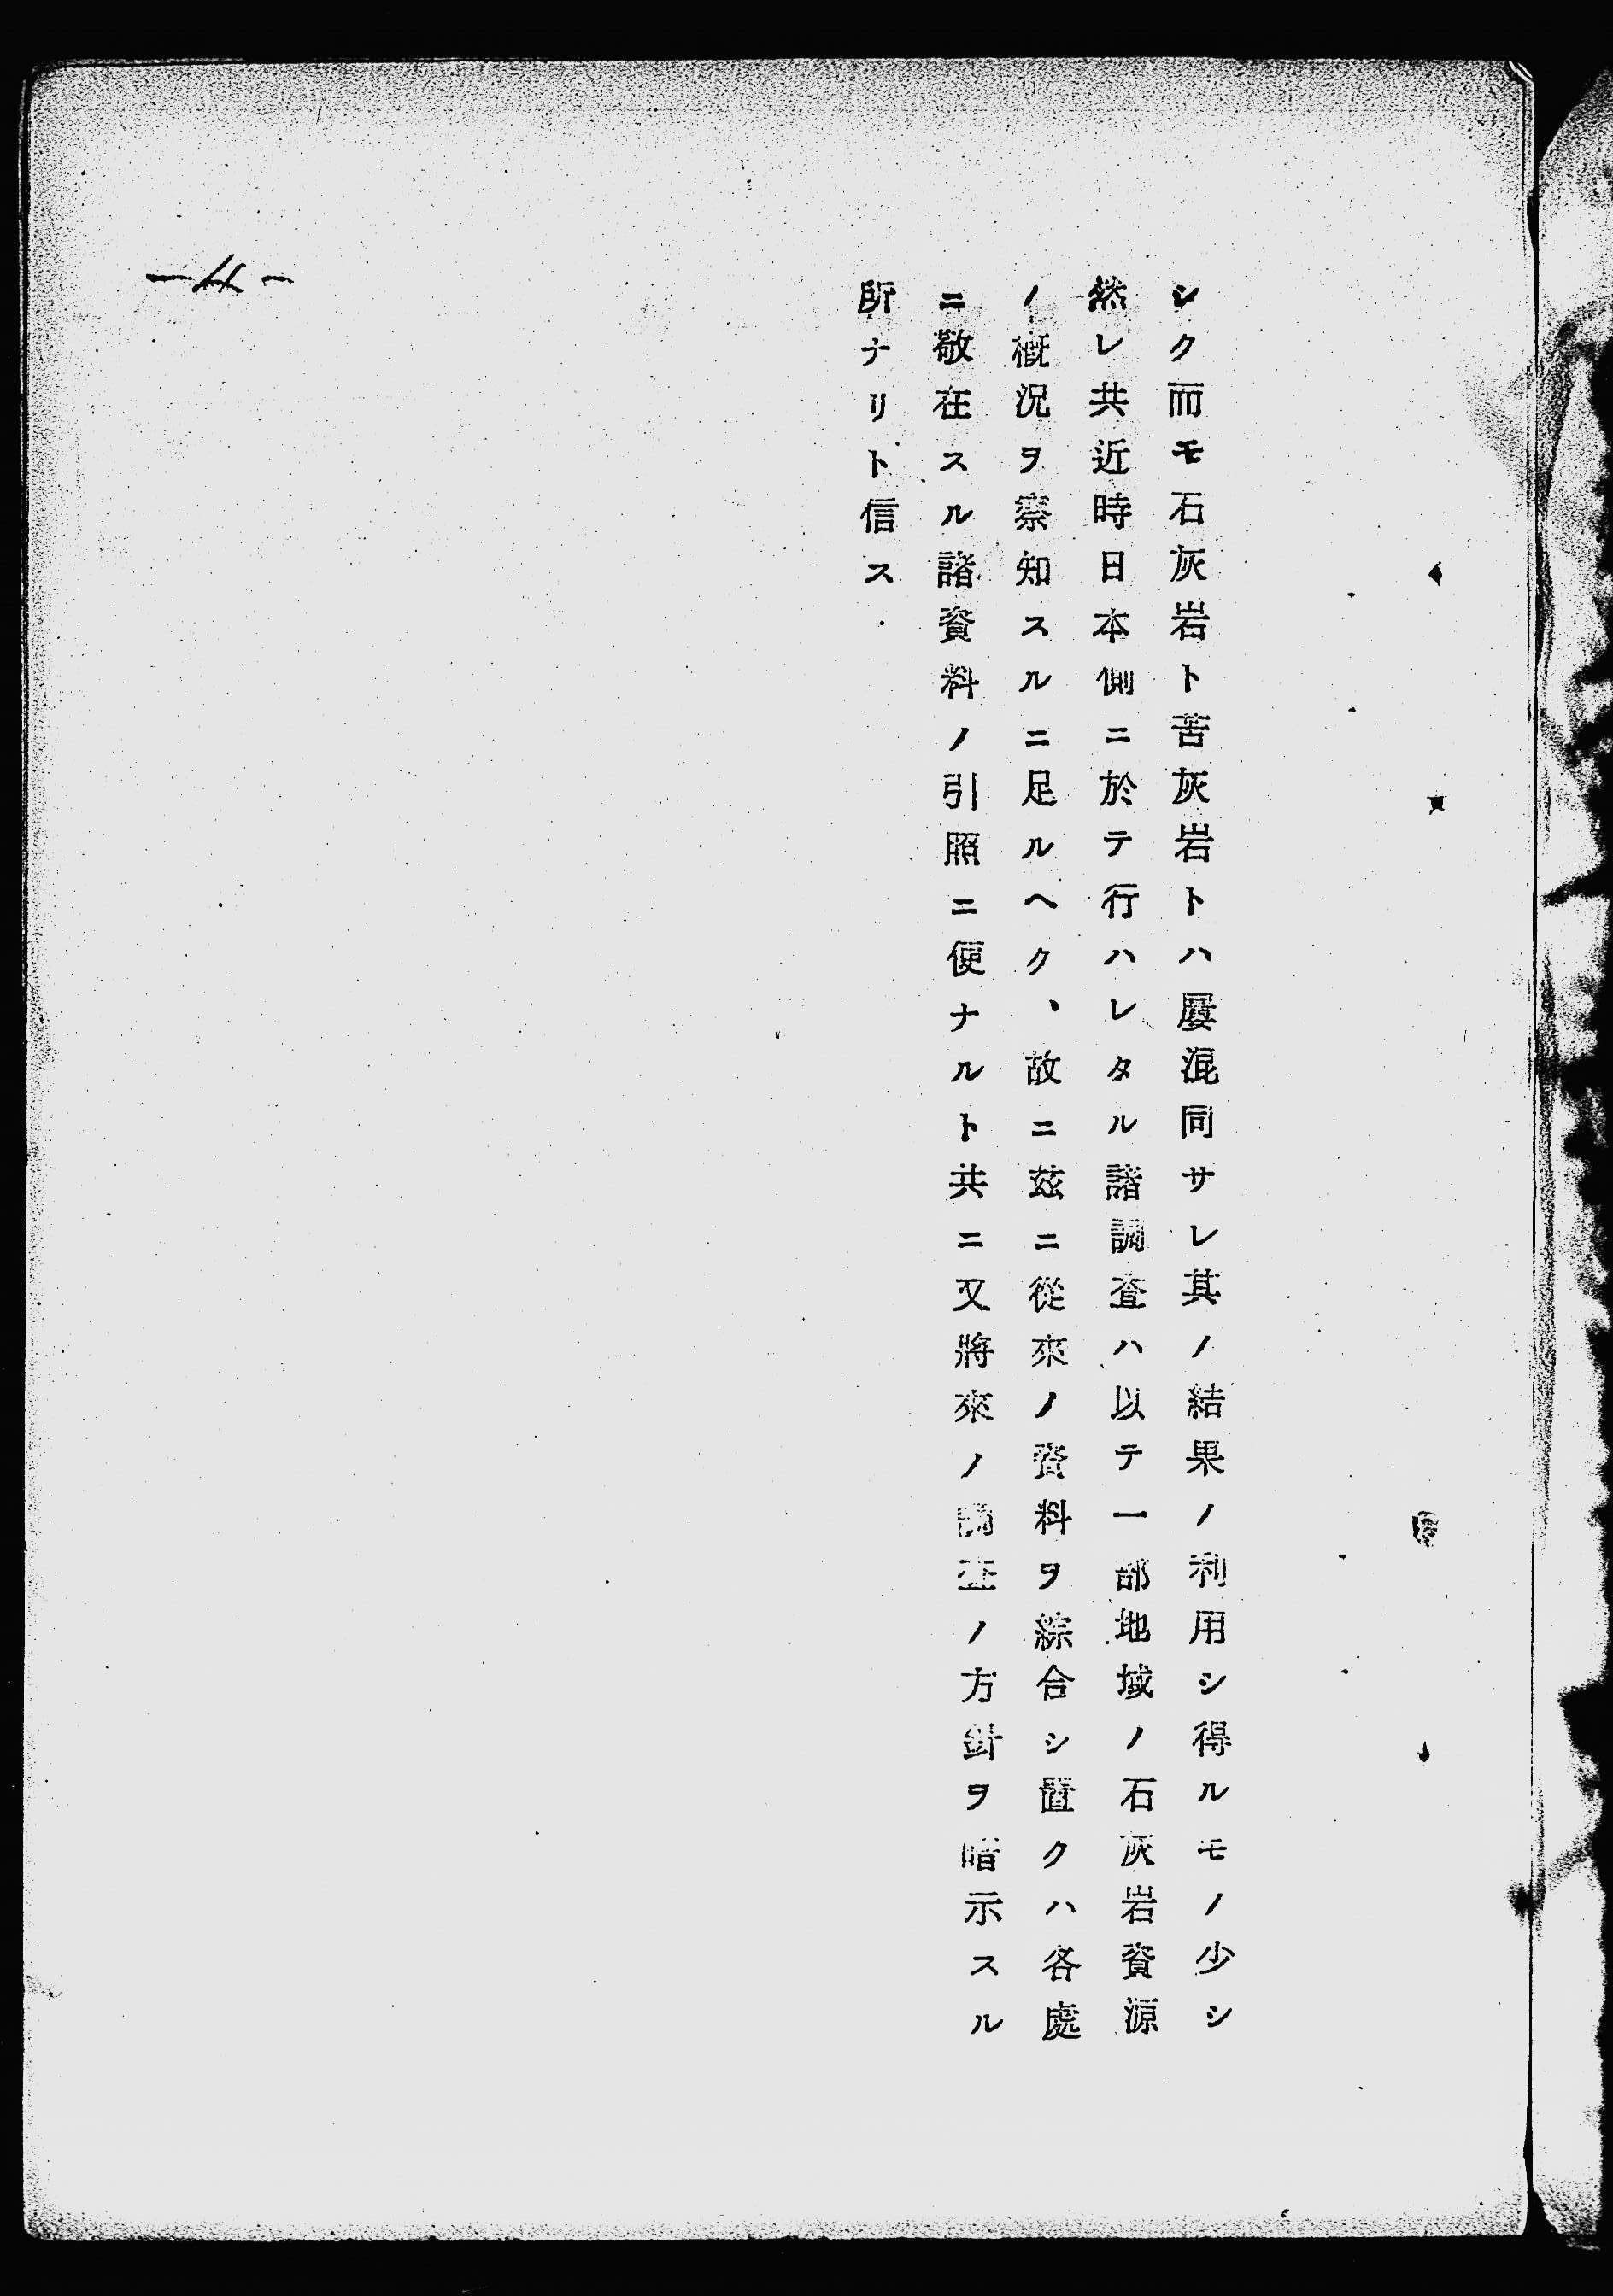 シク而モ石灰岩ト苦灰岩トハ屡混同サレ其ノ結果ノ利用シ得ルモノ少シ
然レ共近時日本側ニ於テ行ハレタル諸調査ハ以テ一部地域ノ石灰岩資源
ノ概況ヲ察知スルニ足ルヘク、故ニ茲ニ從來ノ資料ヲ綜合シ置クハ各處
ニ散在スル諸資料ノ引照ニ便ナルト共ニ又將來ノ調査ノ方針ヲ暗示スル
所ナリト信ス
-4-